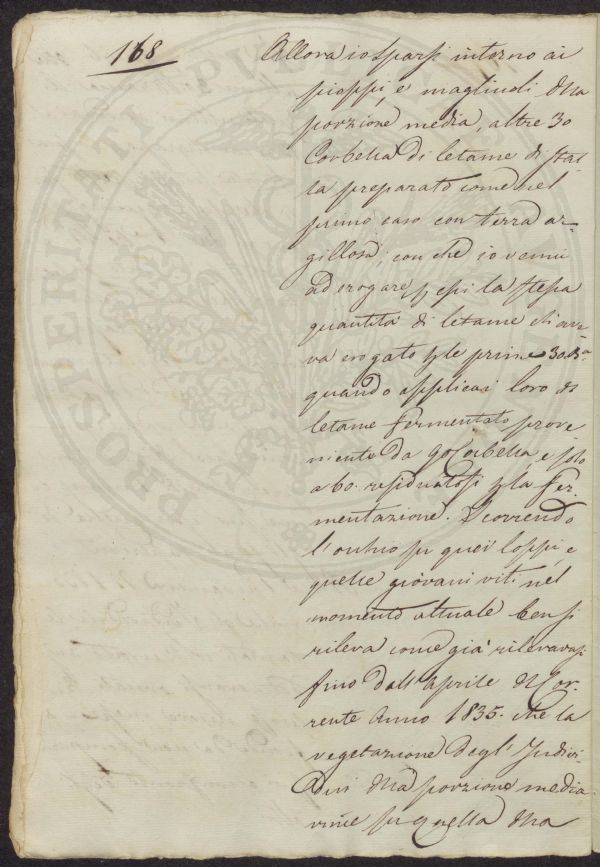 168
Allora io sparsi intorno ai
pioppi, e magliuoli dlla
porzione media, altre 30
Corbella di letame di stal
la preparato come nel
primo caso con terra ar-
gillosa; con che io venni
ad erogare p essi la stessa
quantità di letame ch'ave
va erogato p le prime 30.
quando applicai loro di
letame fermentato prove
niente da 90 Corbella, e solo
a 60. residuatosi p la fer-
mentazione. Scorrendo
l'occhio su quei loppi, e
quelle giovani viti nel
momento attuale ben si
rileva come già rilevavasi
fino dall'Aprile dl Cor-
rente Anno 1835. che la
vegetazione degl'Indivi-
dui dlla porzione media
vince su quella dlla
PROSPERITATI PUBLICAE